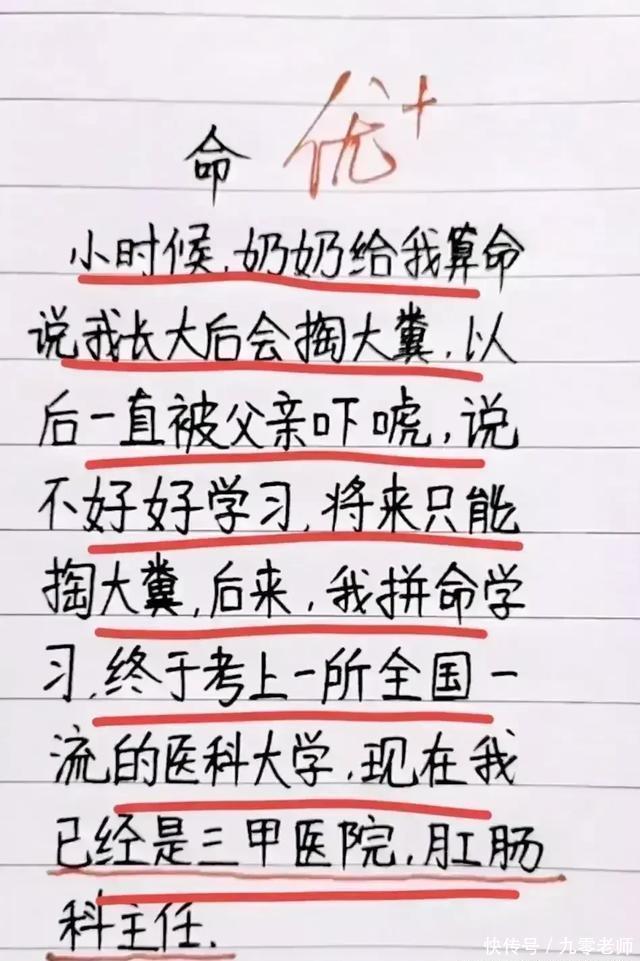 命 优+
小时候,奶奶给我算命
说我长大后会掏大粪,以
后一直被父亲吓唬,说
不好好学习,将来只能
掏大粪,后来,我拼命学
习,终于考上一所全国一
流的医科大学,现在我
已经是三甲医院,肛肠
科主任.
快传号/九零老师